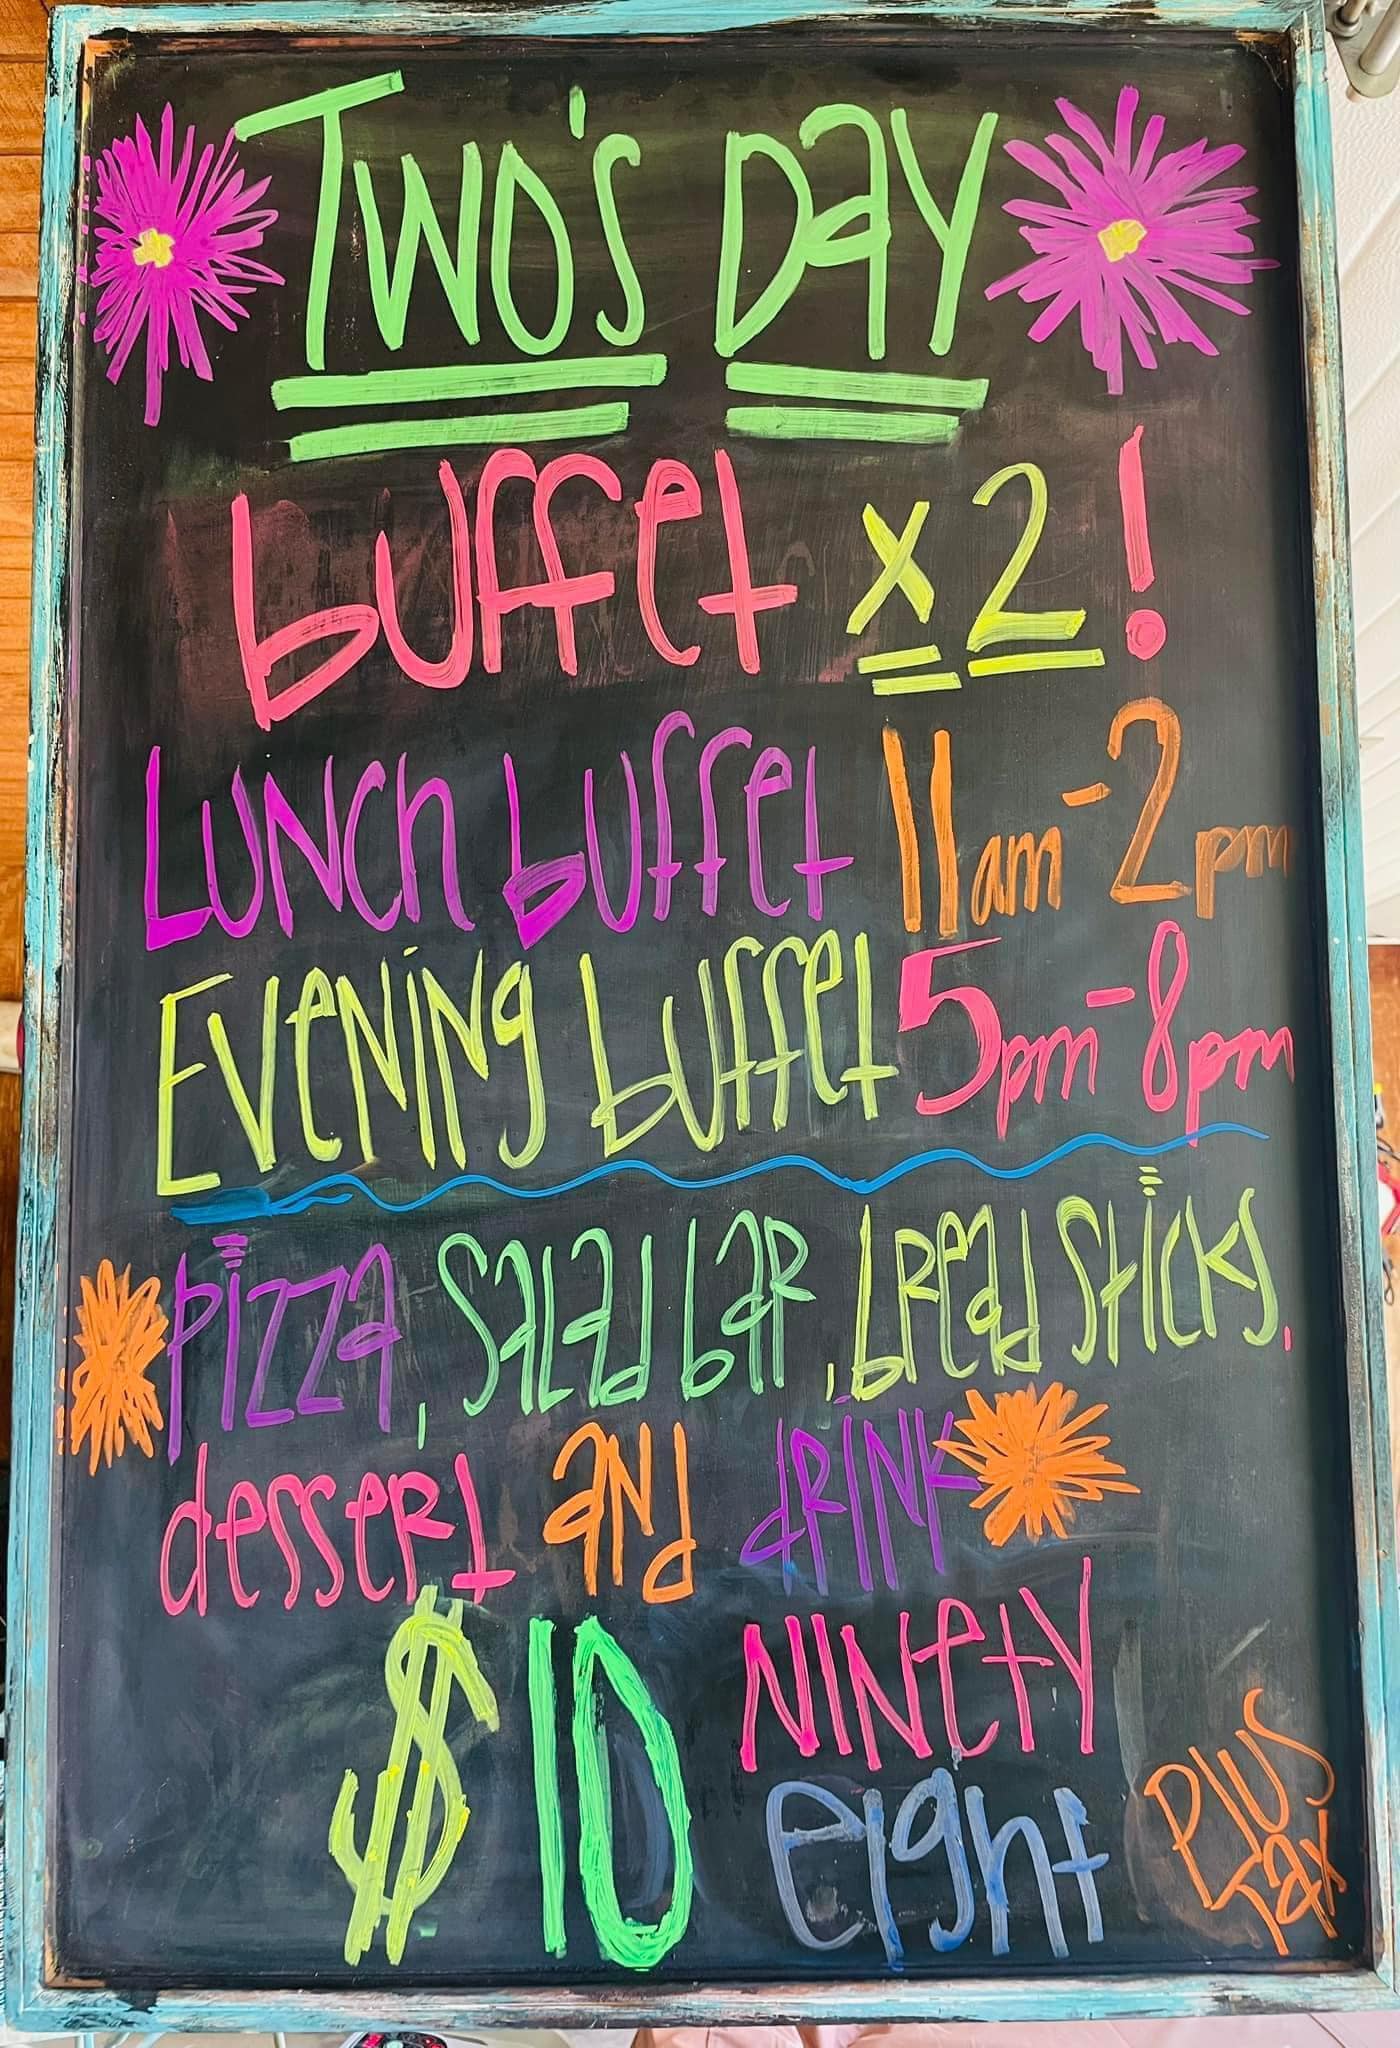 Two's Day
buffet x2!
Lunch buffet 11am-2pm
Evening buffet 5pm-8pm
Pizza, Salad bar, bread sticks,
dessert and drink
$10 Ninety
eight
Plus
Tax